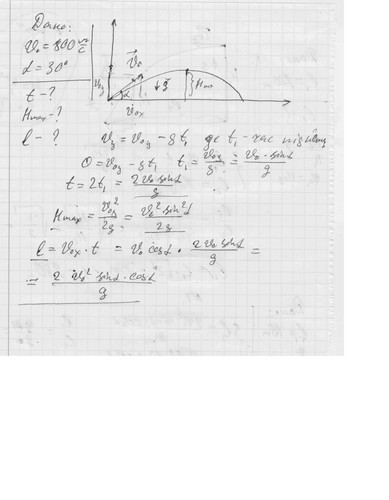 Дано:
v₀ = 800 м/с
α = 30°
t - ?
Hmax - ?
l - ?
v⃗₀
v₀y
α
↓g⃗
Hmax
v⃗₀x
vy = v₀y - gt₁ де t₁ - час підйому
0 = v₀y - gt₁ t₁ = v₀y/g = v₀·sinα/g
t = 2t₁ = 2v₀sinα/g
Hmax = v₀y²/2g = v₀²sin²α/2g
l = v₀x · t = v₀ cosα · 2v₀sinα/g =
= 2v₀²sinα·cosα/g